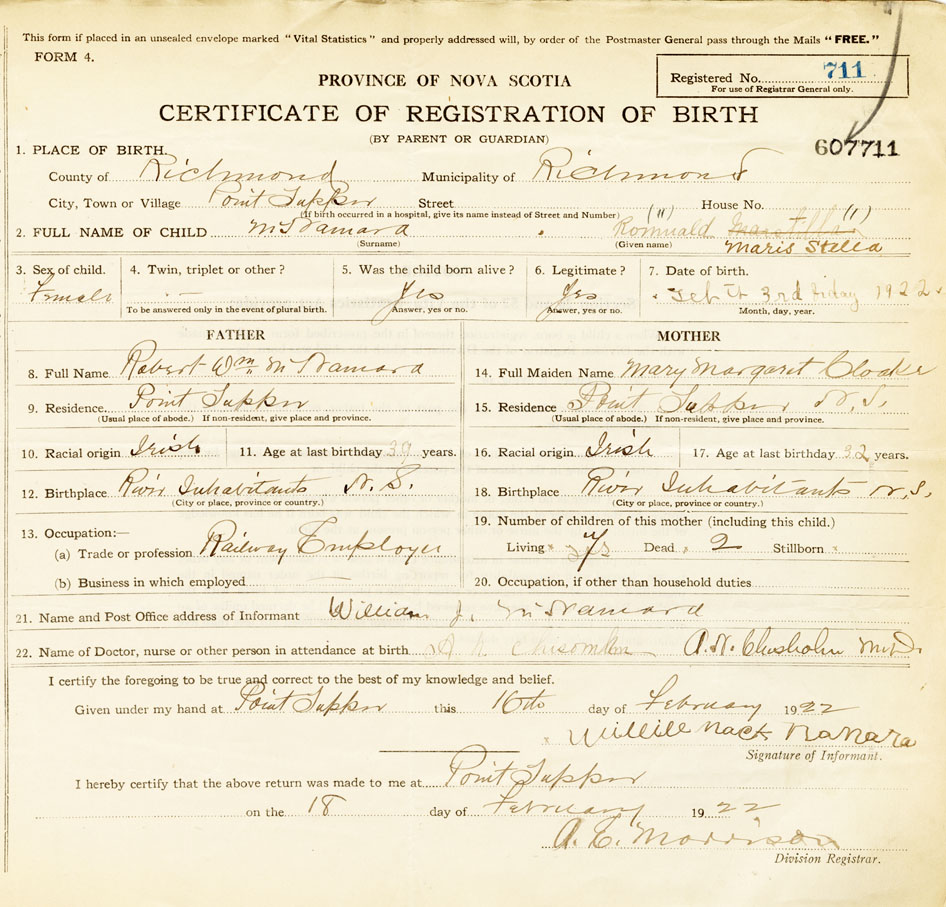 This form if placed in an unsealed envelope marked "Vital Statistics" and properly addressed will, by order of the Postmaster General pass through the Mails "FREE."
FORM 4.
PROVINCE OF NOVA SCOTIA
Registered No. 711
For use of Registrar General only.
CERTIFICATE OF REGISTRATION OF BIRTH
(BY PARENT OR GUARDIAN)
607711
1. PLACE OF BIRTH.
County of Richmond Municipality of Richmond
City, Town or Village Point Tupper Street House No.
(If birth occurred in a hospital, give its name instead of Street and Number)
2. FULL NAME OF CHILD McNamara Romuald Maris Stella
(Surname) (Given name)
3. Sex of child. 4. Twin, triplet or other? 5. Was the child born alive? 6. Legitimate? 7. Date of birth.
Female — Yes Yes 3rd friday 1922
To be answered only in the event of plural birth. Answer, yes or no. Answer, yes or no. Month, day, year.
FATHER MOTHER
8. Full Name Robert Wm McNamara 14. Full Maiden Name Mary Margaret
9. Residence. Point Tupper 15. Residence Point Tupper N.S.
(Usual place of abode.) If non-resident, give place and province. (Usual place of abode.) If non-resident, give place and province.
10. Racial origin Irish 11. Age at last birthday 39 years. 16. Racial origin Irish 17. Age at last birthday 32 years.
12. Birthplace River Inhabitants N.S. 18. Birthplace River Inhabitants N.S.
(City or place, province or country.) (City or place, province or country.)
13. Occupation:— 19. Number of children of this mother (including this child.)
(a) Trade or profession Railway Employee Living 7 Dead 2 Stillborn
(b) Business in which employed — 20. Occupation, if other than household duties
21. Name and Post Office address of Informant William J. McNamara
22. Name of Doctor, nurse or other person in attendance at birth A.N. Chisholm M.D.
I certify the foregoing to be true and correct to the best of my knowledge and belief.
Given under my hand at Point Tupper this 16th day of February 1922
Willie Mack Namara
Signature of Informant.
I hereby certify that the above return was made to me at Point Tupper
on the 18 day of February 1922
A. E. Morrison
Division Registrar.